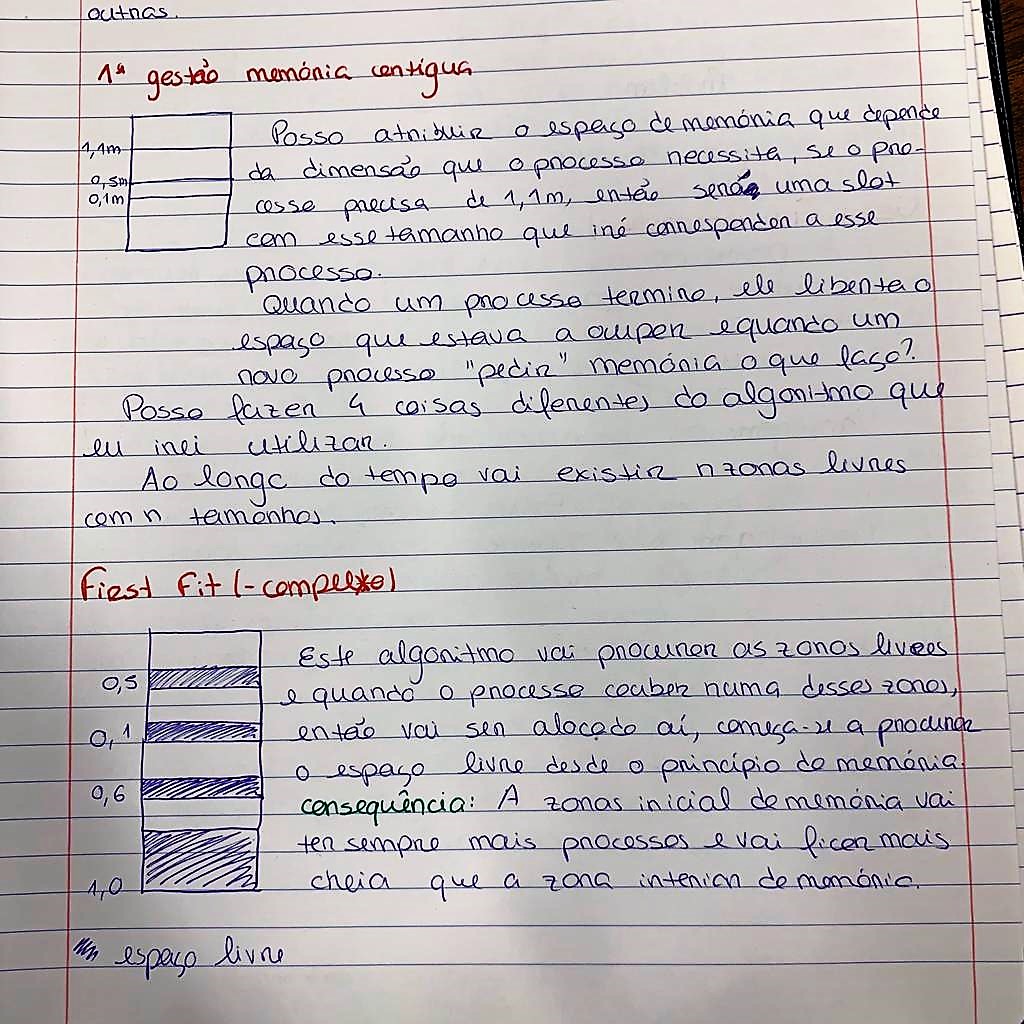 outras.
1ª gestão memória contígua
1,1m
0,5m
0,1m
Posso atribuir o espaço de memória que depende
da dimensão que o processo necessita, se o pro-
cesso precisa de 1,1m, então será uma slot
com esse tamanho que irá corresponder a esse
processo.
Quando um processo termina, ele liberta o
espaço que estava a ocupar e quando um
novo processo "pedir" memória o que faço?
Posso fazer 4 coisas diferentes do algoritmo que
eu irei utilizar.
Ao longo do tempo vai existir n zonas livres
com n tamanhos.
First Fit (- complexo)
0,5
0,1
0,6
1,0
Este algoritmo vai procurar as zonas livres
e quando o processo couber numa desses zonas,
então vai ser alocado aí, começa-se a procurar
o espaço livre desde o princípio da memória
consequência: A zonas inicial de memória vai
ter sempre mais processos e vai ficar mais
cheia que a zona interior de memória.
espaço livre